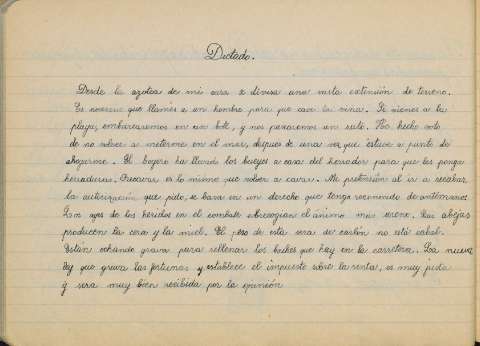 Dictado.
Desde la azotea de mi casa se divisa una vasta extensión de terreno.
Es necesario que llames a un hombre para que cave la viña. Si vienes a la
playa, embarcaremos en un bote, y nos pasearemos un rato. He hecho voto
de no volver a meterme en el mar, después de una vez que estuve a punto de
ahogarme. El boyero ha llevado los bueyes a casa del herrador para que les ponga
herraduras. Recavar es lo mismo que volver a cavar. Mi pretensión al ir a recabar
la autorización que pido, se basa en un derecho que tengo reconocido de antemano.
Los ayes de los heridos en el combate sobrecogían el ánimo más sereno. Las abejas
producen la cera y la miel. El peso de esta sera de carbón no está cabal.
Están echando grava para rellenar los baches que hay en la carretera. La nueva
ley que grava las fortunas y establece el impuesto sobre la renta, es muy justa
y será muy bien recibida por la opinión